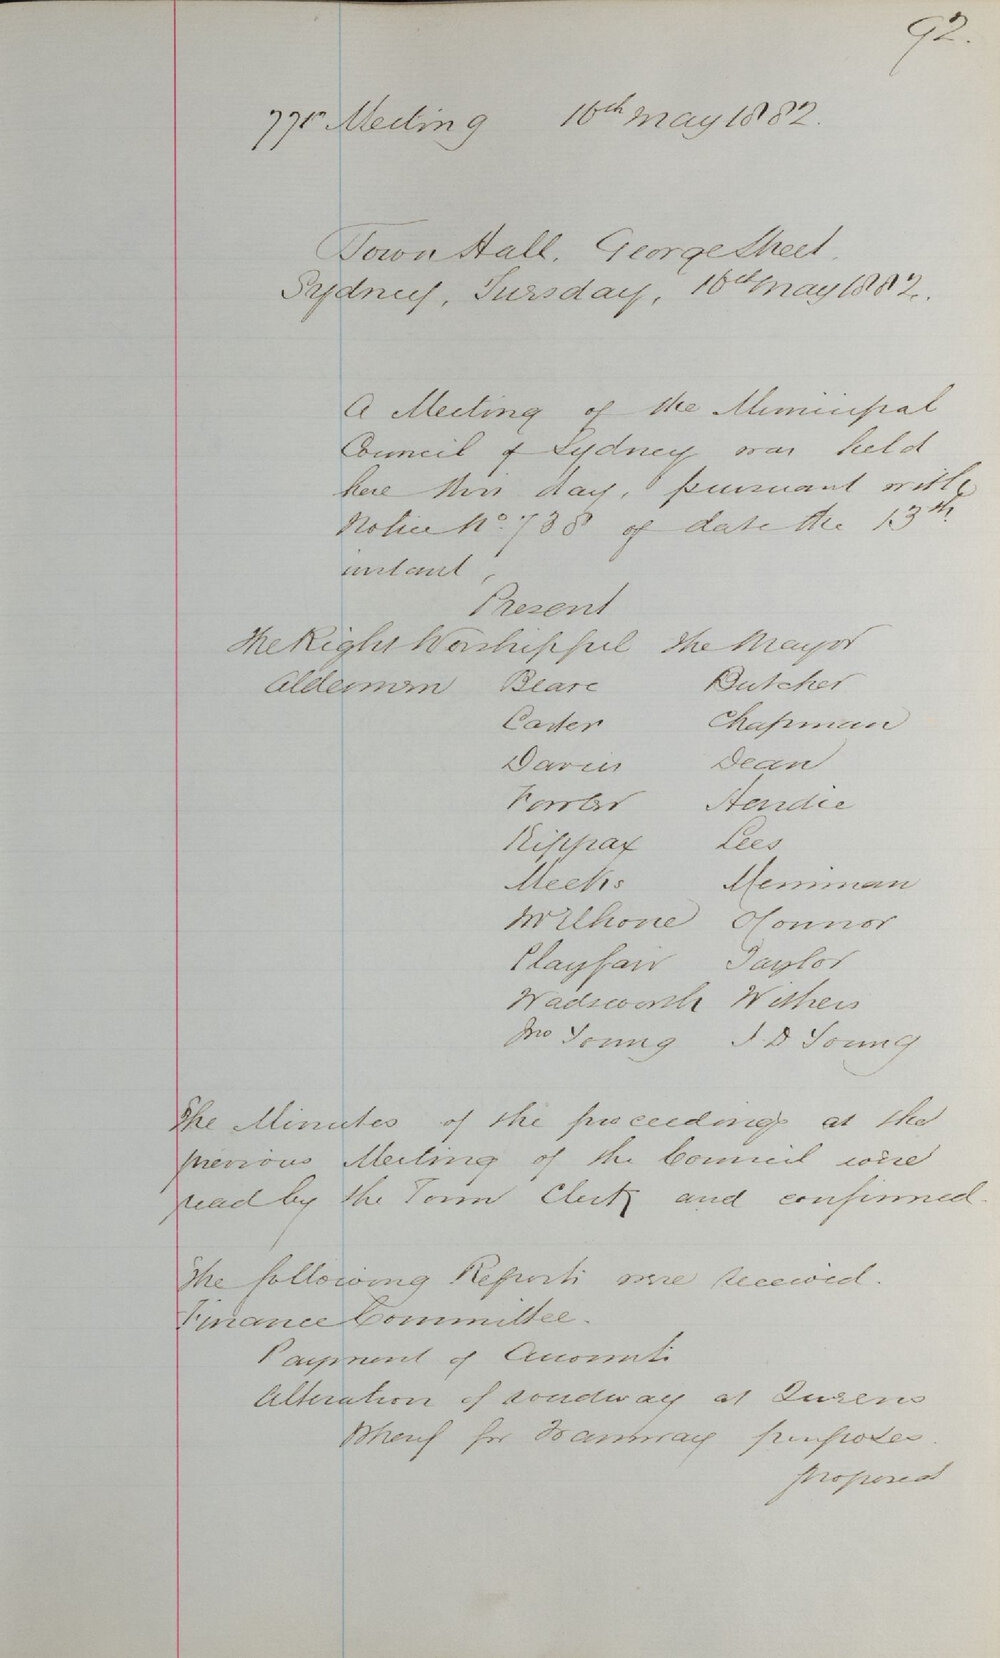 92.
771st Meeting 16th May 1882.
Town Hall, George Street,
Sydney, Tuesday, 16th May 1882.
A Meeting of the Municipal
Council of Sydney was held
here this day, pursuant with
Notice No. 738 of date the 13th
instant,
Present
The Right Worshipful the Mayor
Aldermen Beare Butcher
Carter Chapman
Davies Dean
Fowler Hardie
Kippax Lees
Meeks Merriman
McElhone O'Connor
Playfair Taylor
Wadsworth Withers
Jno Young J D Young
The Minutes of the proceedings at the
previous Meeting of the Council were
read by the Town Clerk and confirmed.
The following Reports were received.
Finance Committee.
Payment of Accounts
Alteration of roadway at Queens
Wharf for Tramway purposes.
proposed